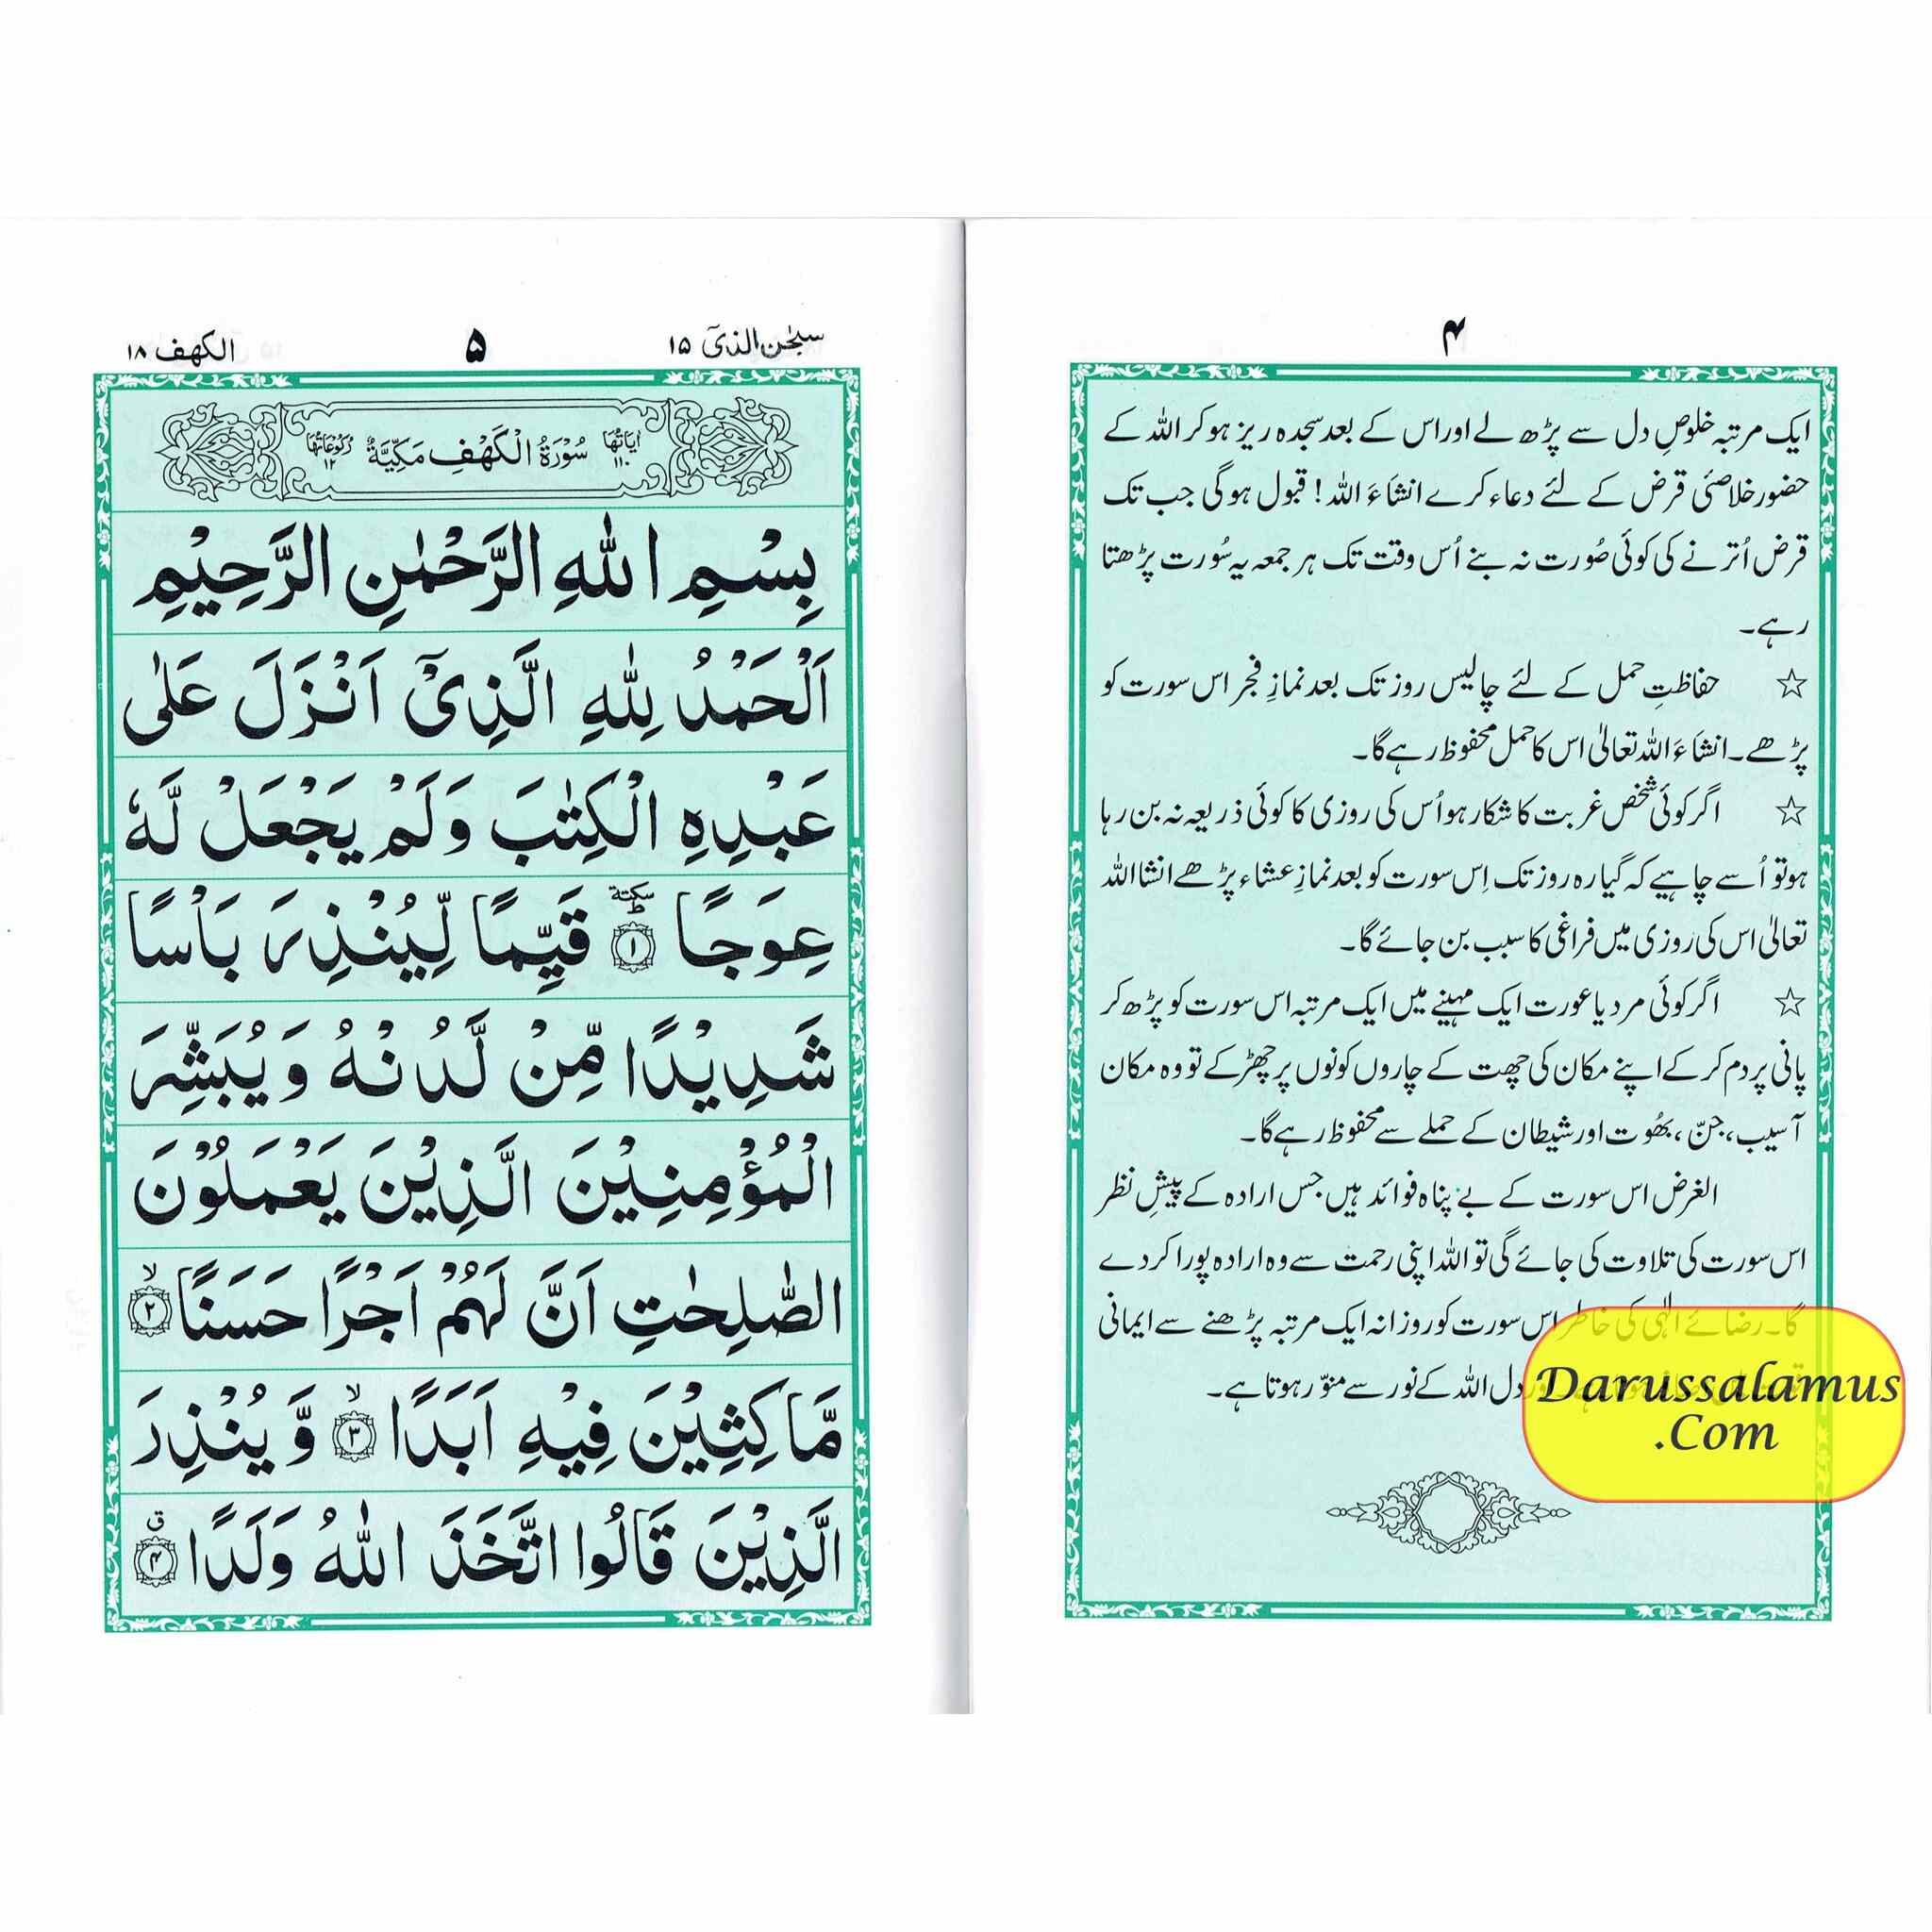 ۴
ایک مرتبہ خلوصِ دل سے پڑھ لے اور اس کے بعد سجدہ ریز ہو کر اللہ کے
حضور خلاصئی قرض کے لئے دعاء کرے انشآءَ اللہ! قبول ہوگی جب تک
قرض اُترنے کی کوئی صُورت نہ بنے اُس وقت تک ہر جمعہ یہ سُورت پڑھتا
رہے۔
☆ حفاظتِ حمل کے لئے چالیس روز تک بعد نمازِ فجر اس سورت کو
پڑھے۔ انشآءَ اللہ تعالیٰ اس کا حمل محفوظ رہے گا۔
☆ اگر کوئی شخص غربت کا شکار ہو اُس کی روزی کا کوئی ذریعہ نہ بن رہا
ہو تو اُسے چاہیے کہ گیارہ روز تک اِس سورت کو بعد نمازِ عشاء پڑھے انشا اللہ
تعالیٰ اس کی روزی میں فراغی کا سبب بن جائے گا۔
☆ اگر کوئی مرد یا عورت ایک مہینے میں ایک مرتبہ اس سورت کو پڑھ کر
پانی پر دم کر کے اپنے مکان کی چھت کے چاروں کونوں پر چھڑکے تو وہ مکان
آسیب، جنّ، بھُوت اور شیطان کے حملے سے محفوظ رہے گا۔
الغرض اس سورت کے بے پناہ فوائد ہیں جس ارادہ کے پیشِ نظر
اس سورت کی تلاوت کی جائے گی تو اللہ اپنی رحمت سے وہ ارادہ پورا کر دے
گا۔ رضائے الٰہی کی خاطر اس سورت کو روزانہ ایک مرتبہ پڑھنے سے ایمانی
دل اللہ کے نور سے منوّر ہوتا ہے۔
Darussalamus
.Com
سبحٰن الذیٓ ۱۵ ۵ الکھف ۱۸
اٰیَاتُهَا ۱۱۰ سُوْرَةُ الْكَهْفِ مَكِّيَّةٌ رُكُوْعَاتُهَا ۱۲
بِسْمِ اللّٰهِ الرَّحْمٰنِ الرَّحِيْمِ
اَلْحَمْدُ لِلّٰهِ الَّذِيْٓ اَنْزَلَ عَلٰى
عَبْدِهِ الْكِتٰبَ وَلَمْ يَجْعَلْ لَّهٗ
عِوَجًا ۱ سكتة قَيِّمًا لِّيُنْذِرَ بَاْسًا
شَدِيْدًا مِّنْ لَّدُنْهُ وَيُبَشِّرَ
الْمُؤْمِنِيْنَ الَّذِيْنَ يَعْمَلُوْنَ
الصّٰلِحٰتِ اَنَّ لَهُمْ اَجْرًا حَسَنًا ۲ لا
مَّاكِثِيْنَ فِيْهِ اَبَدًا ۳ لا وَّيُنْذِرَ
الَّذِيْنَ قَالُوا اتَّخَذَ اللّٰهُ وَلَدًا ۴ ق